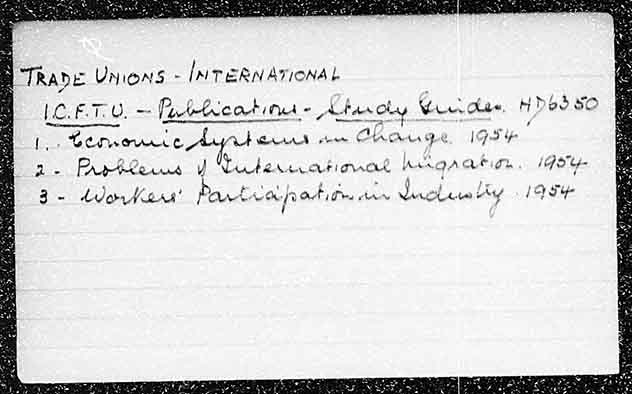 TRADE UNIONS - INTERNATIONAL
I.C.F.T.U. - Publications - Study Guides. HD6350
1. Economic Systems in Change. 1954
2 - Problems of International Migration. 1954
3 - Workers' Participation in Industry. 1954